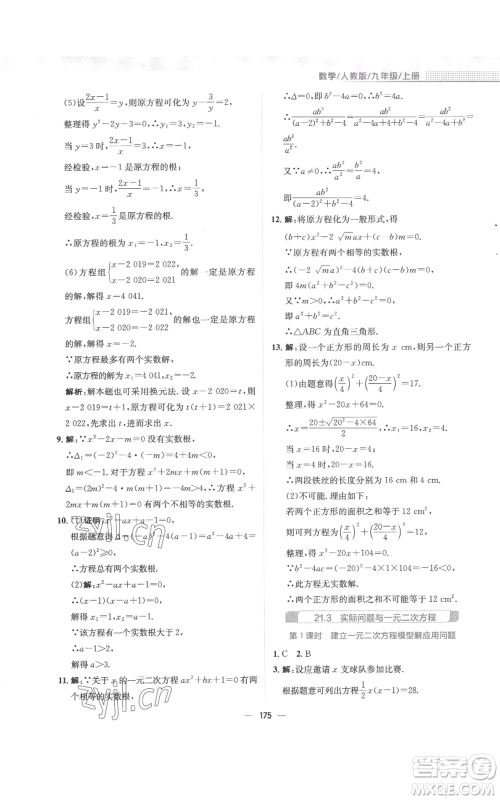 数学/人教版/九年级/上册
(5)设(2x-1)/x=y,则原方程可化为y-3/y=2,
整理得y²-2y-3=0,∴y=3或y=-1.
当y=3时,(2x-1)/x=3,∴x=-1,
经检验,x=-1是原方程的根;
当y=-1时,(2x-1)/x=-1,∴x=1/3,
经检验,x=1/3是原方程的根.
∴原方程的根为x=-1或x=1/3.
(6)方程组{x-2 019=2 021, x-2 020=2 022的解一定是原方程
的解,解得x=4 041.
方程组{x-2 019=-2 022, x-2 020=-2 021的解一定是原方程
的解,
∵原方程最多有两个实数解,
解析:解本题也可采用换元法.设x-2 020=t,则
x-2 019=t+1,原方程可化为t(t+1)=2 021×
2 022,先求出t,进而求出x.
9.解:∵x²-2x-m=0没有实数根,
∴Δ₁=(-2)²-4·(-m)=4+4m<0,
即m<-1.对于方程x²+2mx+m(m+1)=0,
Δ₂=(2m)²-4·m(m+1)=-4m>4,∴方程x²+
2mx+m(m+1)=0有两个不相等的实数根.
10.(1)证明:
根据题意得Δ=(-a)²-4(a-1)=a²-4a+4=
(a-2)²≥0,
∴方程总有两个实数根.
(2)解:∵x²-ax+a-1=0,
解得x₁=1,x₂=a-1.
∵该方程有一实数根大于3,
∴a-1>3,
解得a>4.
11.解:
∴Δ=0,即b²-4a=0,∴b²=4a.
∵ab²/((a-2)²+b²-4)=ab²/(a²-4a+4+b²-4)=ab²/(a²-4a+b²)=
ab²/a²,
又∵a≠0,∴ab²/a²=b²/a=4a/a=4,
即ab²/((a-2)²+b²-4)=4.
12.解:将原方程化为一般形式,得
(b+c)x²-2√m ax+(c-b)m=0.
∵原方程有两个相等的实数根,
∴Δ=(-2√m a)²-4(b+c)(c-b)m=0,
即4m(a²-c²+b²)=0.
又∵m>0,∴a²-c²+b²=0,
即a²+b²=c².
∴△ABC为直角三角形.
13.解:设一个正方形的周长为x cm,则另一个正方
形的周长为(20-x)cm.
(1)由题意得(x/4)²+((20-x)/4)²=17.
∴x=(20±√(20²-4×64))/2,∴x₁=16,x₂=4.
当x=16时,20-x=4;
当x=4时,20-x=16.
∴两段铁丝的长度分别为16 cm和4 cm.
(2)不能.理由如下:
若两个正方形的面积之和可能等于12 cm²,
则可列方程为(x/4)²+((20-x)/4)²=12.
整理得x²-20x+104=0.
∵b²-4ac=20²-4×104=-16<0,
∴此方程无实数根.
∴两个正方形的面积之和不可能等于12 cm².
21.3 实际问题与一元二次方程
第1课时 建立一元二次方程模型解应用问题
1.C 2.B
3.解:设应邀请x支球队参加比赛.
175